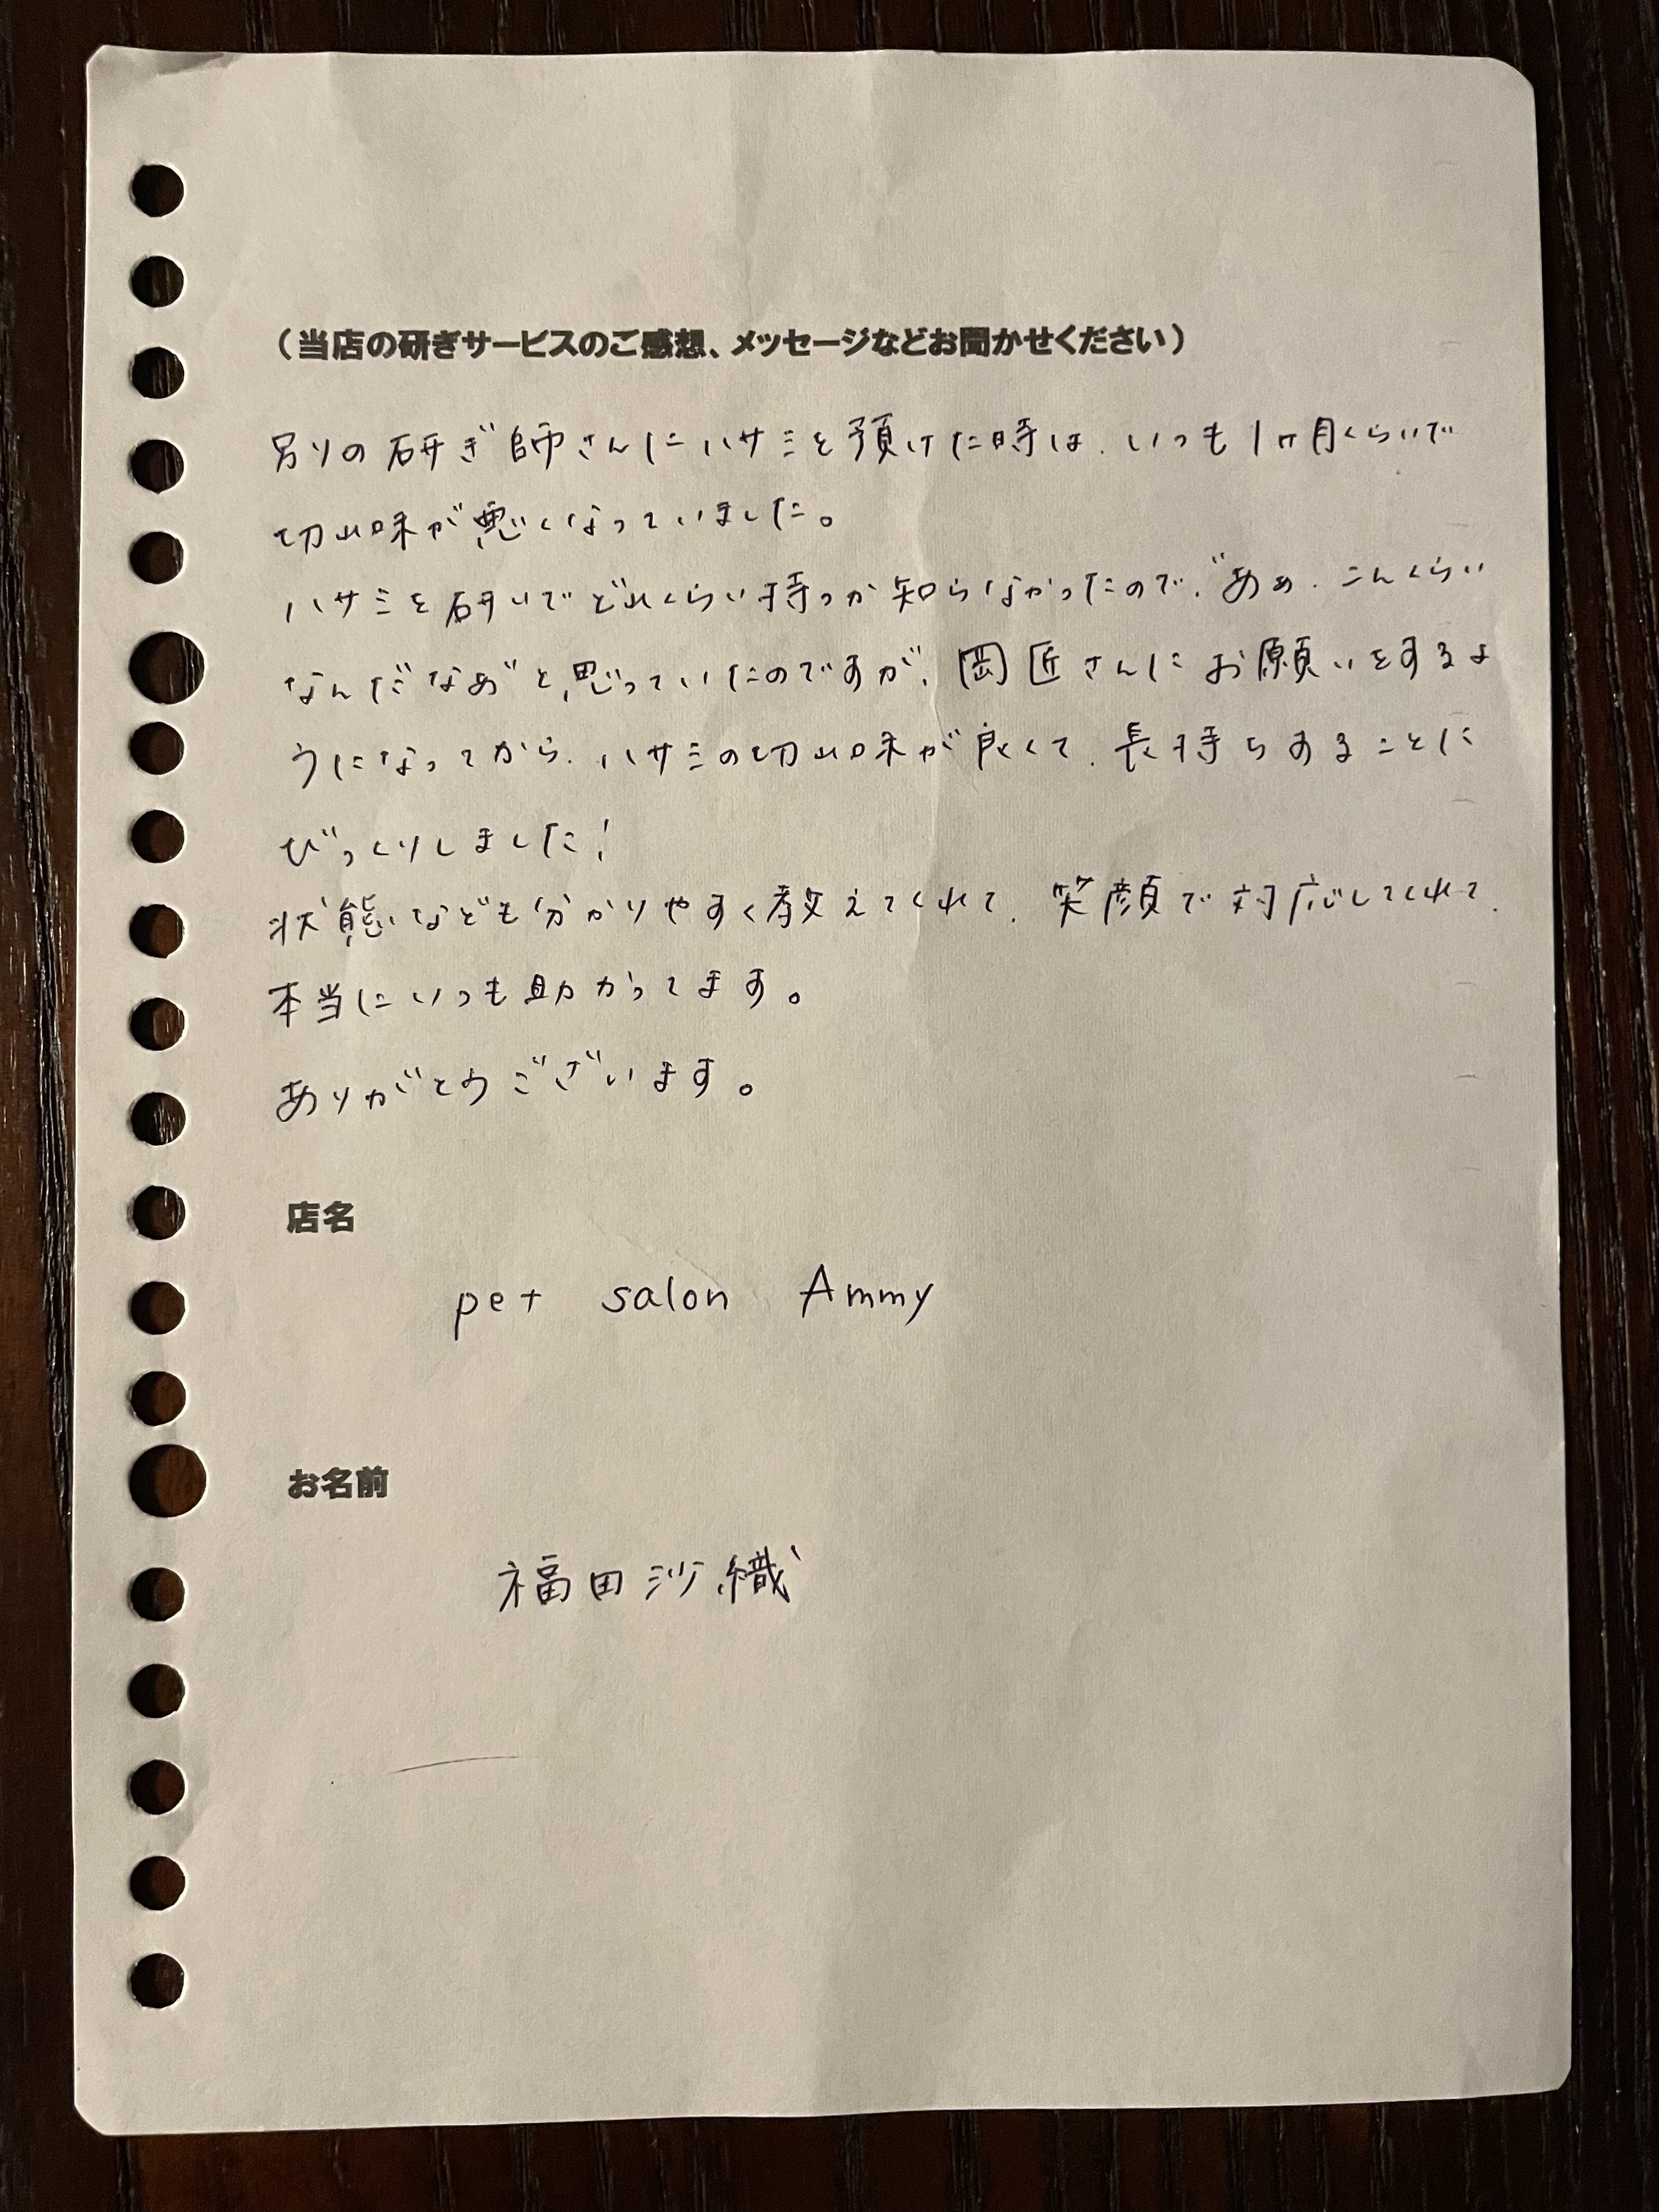 （当店の研ぎサービスのご感想、メッセージなどお聞かせください）
別の研ぎ師さんにハサミを預けた時は、いつも1ヶ月くらいで
切れ味が悪くなっていました。
ハサミを研いでどれくらい持つか知らなかったので、"あぁ、こんくらい
なんだなぁ"と思っていたのですが、岡匠さんにお願いをするよ
うになってから、ハサミの切れ味が良くて、長持ちすることに
びっくりしました!
状態なども分かりやすく教えてくれて、笑顔で対応してくれて、
本当にいつも助かってます。
ありがとうございます。
店名
pet salon Ammy
お名前
福田沙織